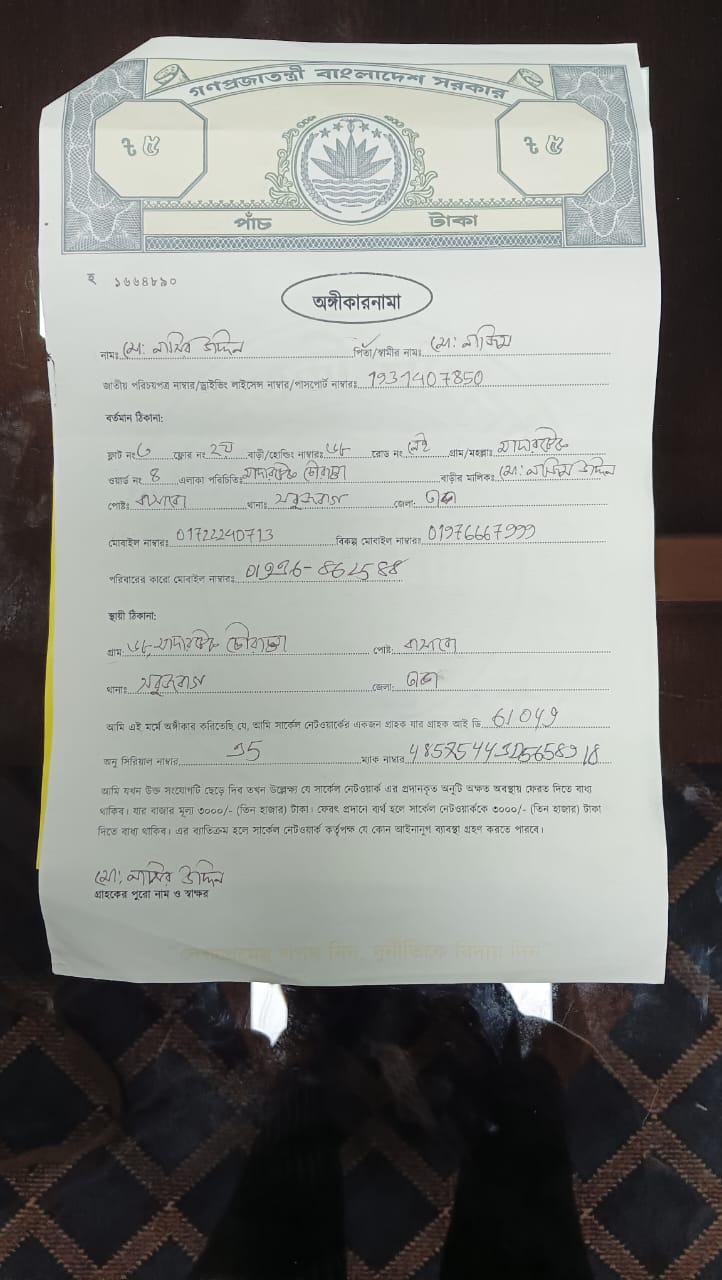 গণপ্রজাতন্ত্রী বাংলাদেশ সরকার
৳ ৫ ৳ ৫
পাঁচ টাকা
হ ১৬৬৪৮৯০
অঙ্গীকারনামা
নামঃ মো: নাসির উদ্দিন পিতা/স্বামীর নামঃ মো: নাজিম
জাতীয় পরিচয়পত্র নাম্বার/ড্রাইভিং লাইসেন্স নাম্বার/পাসপোর্ট নাম্বারঃ 1931407850
বর্তমান ঠিকানা:
ফ্লাট নং ৩ ফ্লোর নং ২য় বাড়ী/হোল্ডিং নাম্বারঃ রোড নং নেই গ্রাম/মহল্লাঃ মাদারটেক
ওয়ার্ড নং 4 এলাকা পরিচিতিঃ মাদারটেক চৌরাস্তা বাড়ীর মালিকঃ মো: নাজিম উদ্দিন
পোষ্টঃ বাসাবো থানাঃ সবুজবাগ জেলা: ঢাকা
মোবাইল নাম্বারঃ 01722240713 বিকল্প মোবাইল নাম্বারঃ 01976667999
পরিবারের কারো মোবাইল নাম্বারঃ
স্থায়ী ঠিকানা:
গ্রাম: মাদারটেক চৌরাস্তা পোষ্ট: বাসাবো
থানাঃ সবুজবাগ জেলা: ঢাকা
আমি এই মর্মে অঙ্গীকার করিতেছি যে, আমি সার্কেল নেটওয়ার্কের একজন গ্রাহক যার গ্রাহক আই ডি 61049
অনু সিরিয়াল নাম্বার ম্যাক নাম্বার
আমি যখন উক্ত সংযোগটি ছেড়ে দিব তখন উল্লেক্ষ্য যে সার্কেল নেটওয়ার্ক এর প্রদানকৃত অনুটি অক্ষত অবস্থায় ফেরত দিতে বাধ্য
থাকিব। যার বাজার মূল্য ৩০০০/- (তিন হাজার) টাকা। ফেরৎ প্রদানে ব্যর্থ হলে সার্কেল নেটওয়ার্ককে ৩০০০/- (তিন হাজার) টাকা
দিতে বাধ্য থাকিব। এর ব্যতিক্রম হলে সার্কেল নেটওয়ার্ক কর্তৃপক্ষ যে কোন আইনানুগ ব্যবস্থা গ্রহণ করতে পারবে।
মো: নাসির উদ্দিন
গ্রাহকের পুরো নাম ও স্বাক্ষর